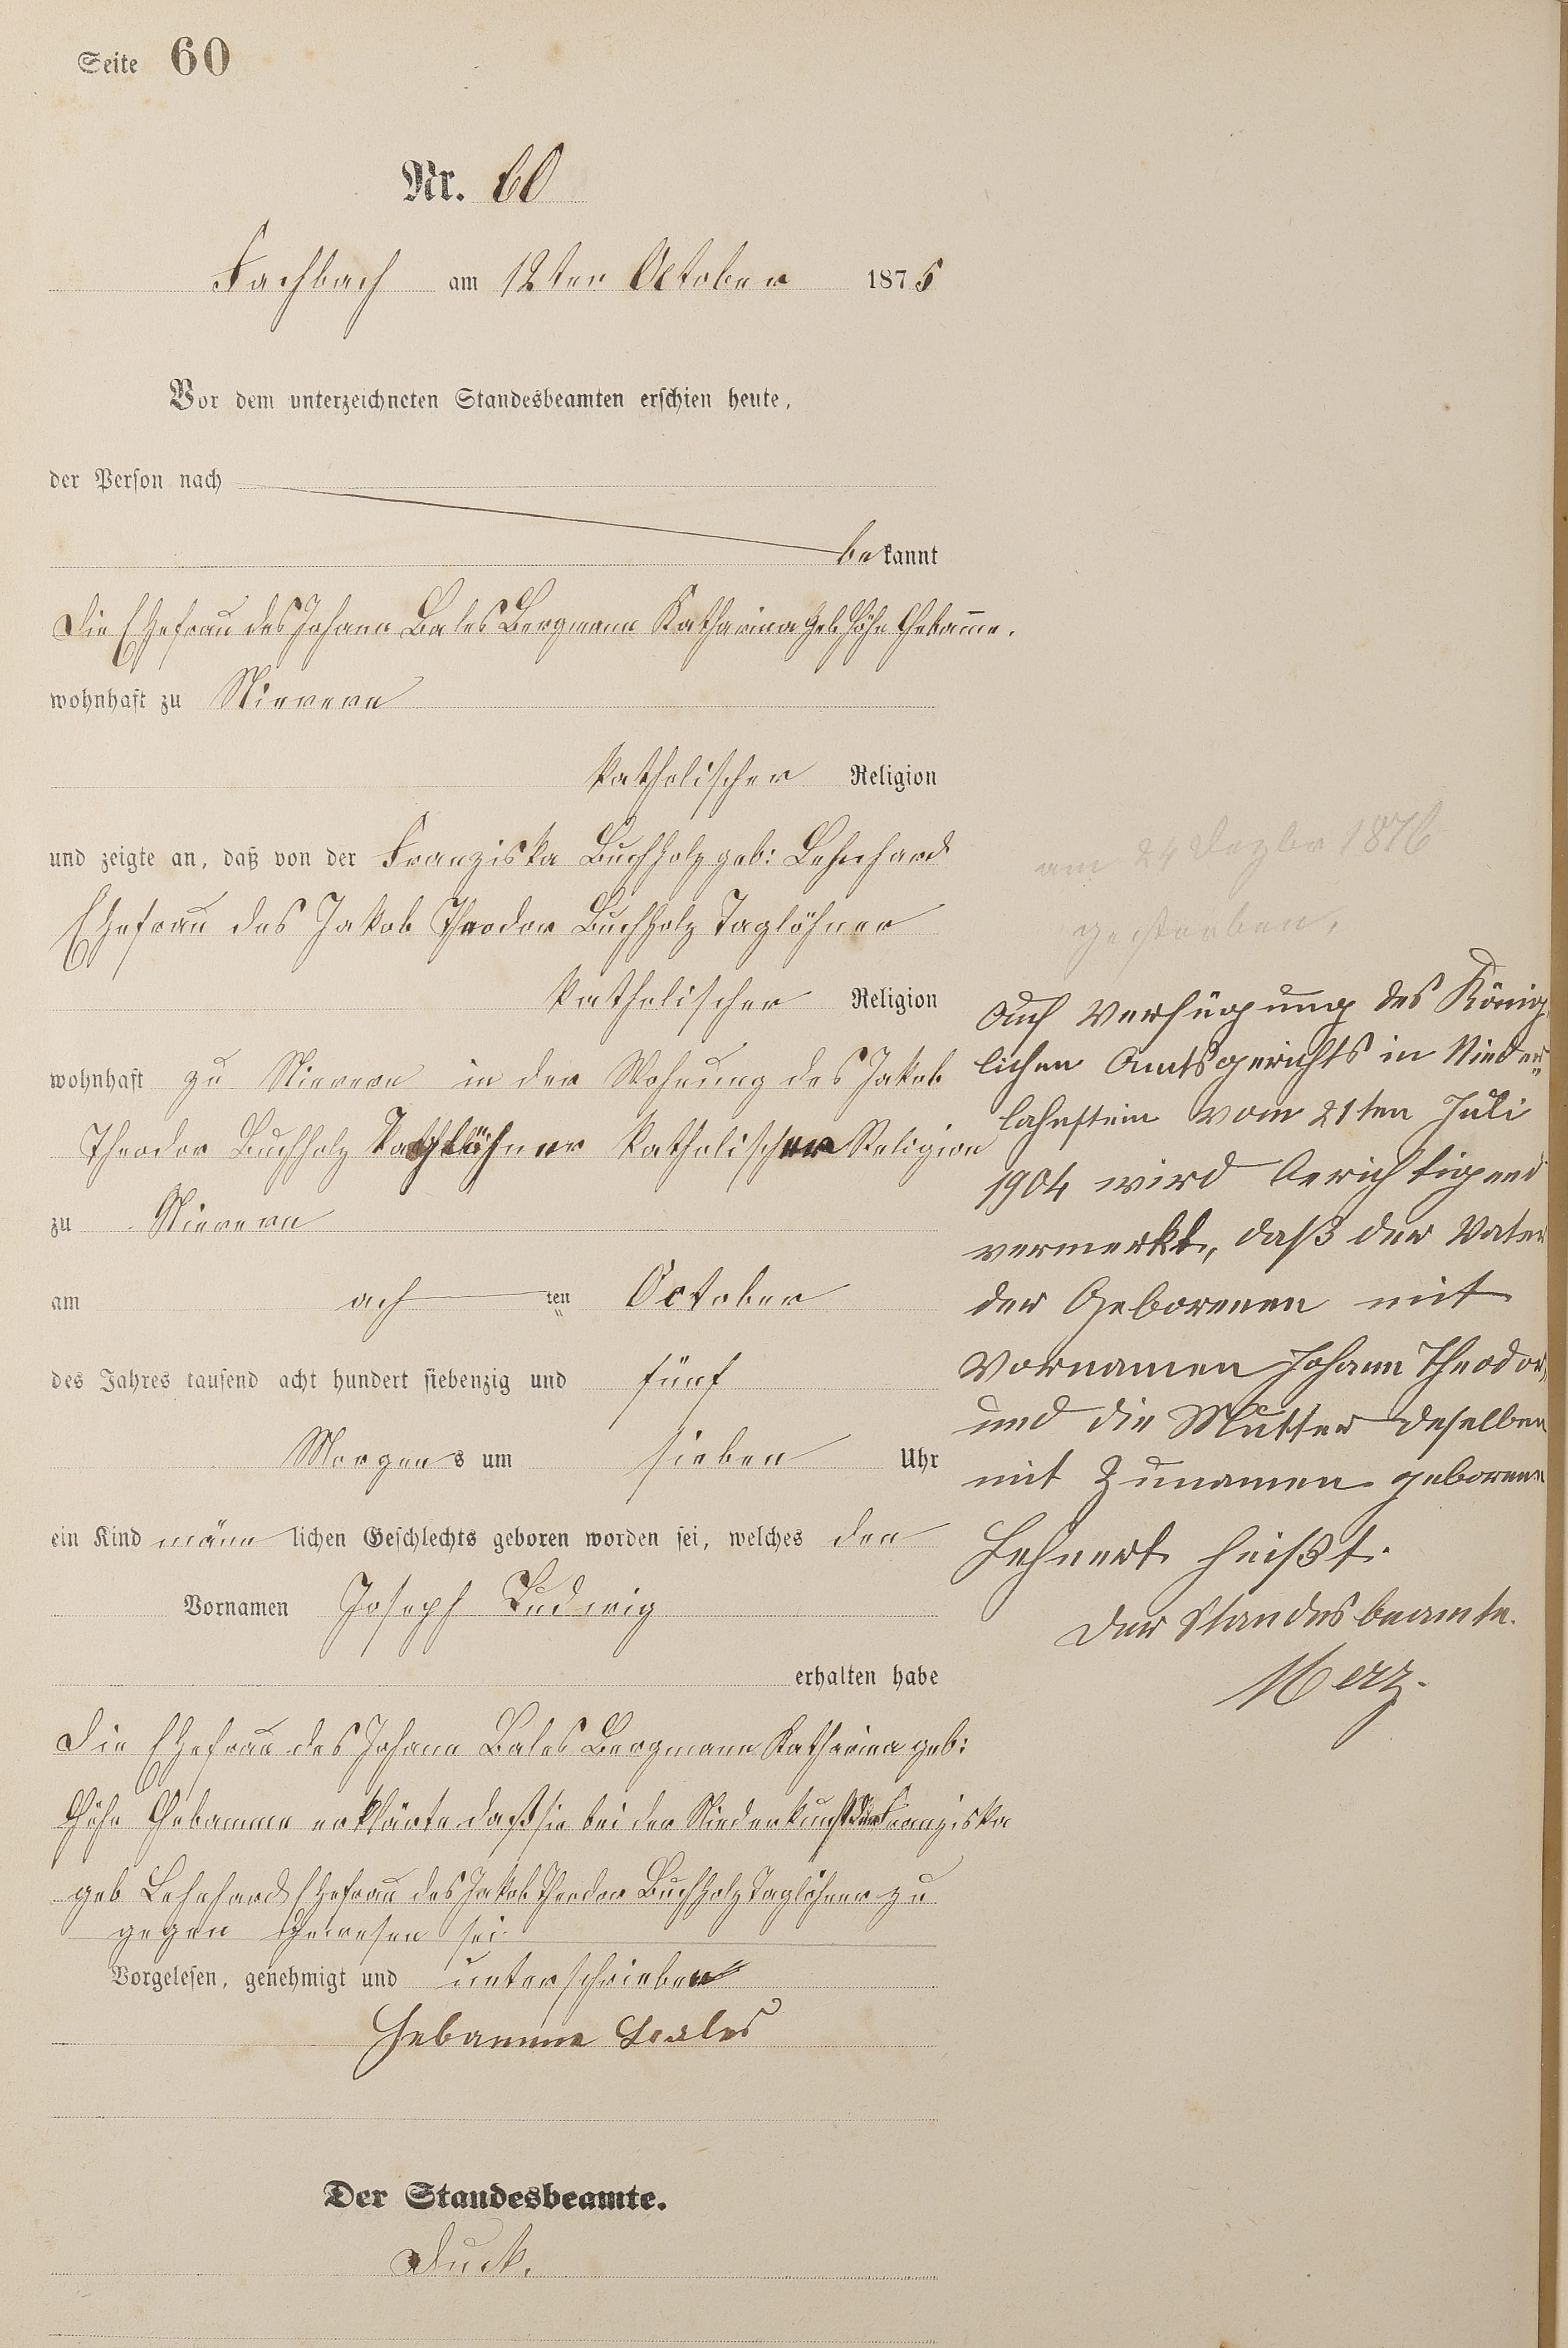 Seite 60
Nr. 60
Fachbach am 12ten October 1875
Vor dem unterzeichneten Standesbeamten erschien heute,
der Person nach
bekannt
Die Ehefrau des Johann Bales Bergmann Katharina geb Höhn Hebam̅e.
wohnhaft zu Nievern
katholischer Religion
und zeigte an, daß von der Franziska Buchholz geb: Lehnhard
Ehefrau des Jakob Theodor Buchholz Taglöhner
katholischer Religion
wohnhaft zu Nievern in der Wohnung des Jakob
Theodor Buchholz Taglöhner katholischer Religion
zu Nievern
am ach ten October
des Jahres tausend acht hundert siebenzig und fünf
Morgens um sieben Uhr
ein Kind männlichen Geschlechts geboren worden sei, welches den
Vornamen Joseph Ludwig
erhalten habe
Die Ehefrau des Johann Bales Bergmann Katharina geb:
Höhn Hebamme erklärte daß sie bei der Niederkunft der Franziska
geb Lehnhard Ehefrau des Jakob Theodor Buchholz Taglöhner zu
gegen gewesen sei
Vorgelesen, genehmigt und unterschrieben
Hebamme Bales
Der Standesbeamte.
Duck.
am 24 Dezbr 1876
gestorben,
Auf Verfügung des König-
lichen Amtsgerichts in Nieder-
lahnstein vom 21ten Juli
1904 wird berichtigend
vermerkt, daß der Vater
der Geborenen mit
Vornamen Johann Theodor,
und die Mutter deselben
mit Zunamen geborene
Lehnert heißt.
Der Standesbeamte.
Merz.